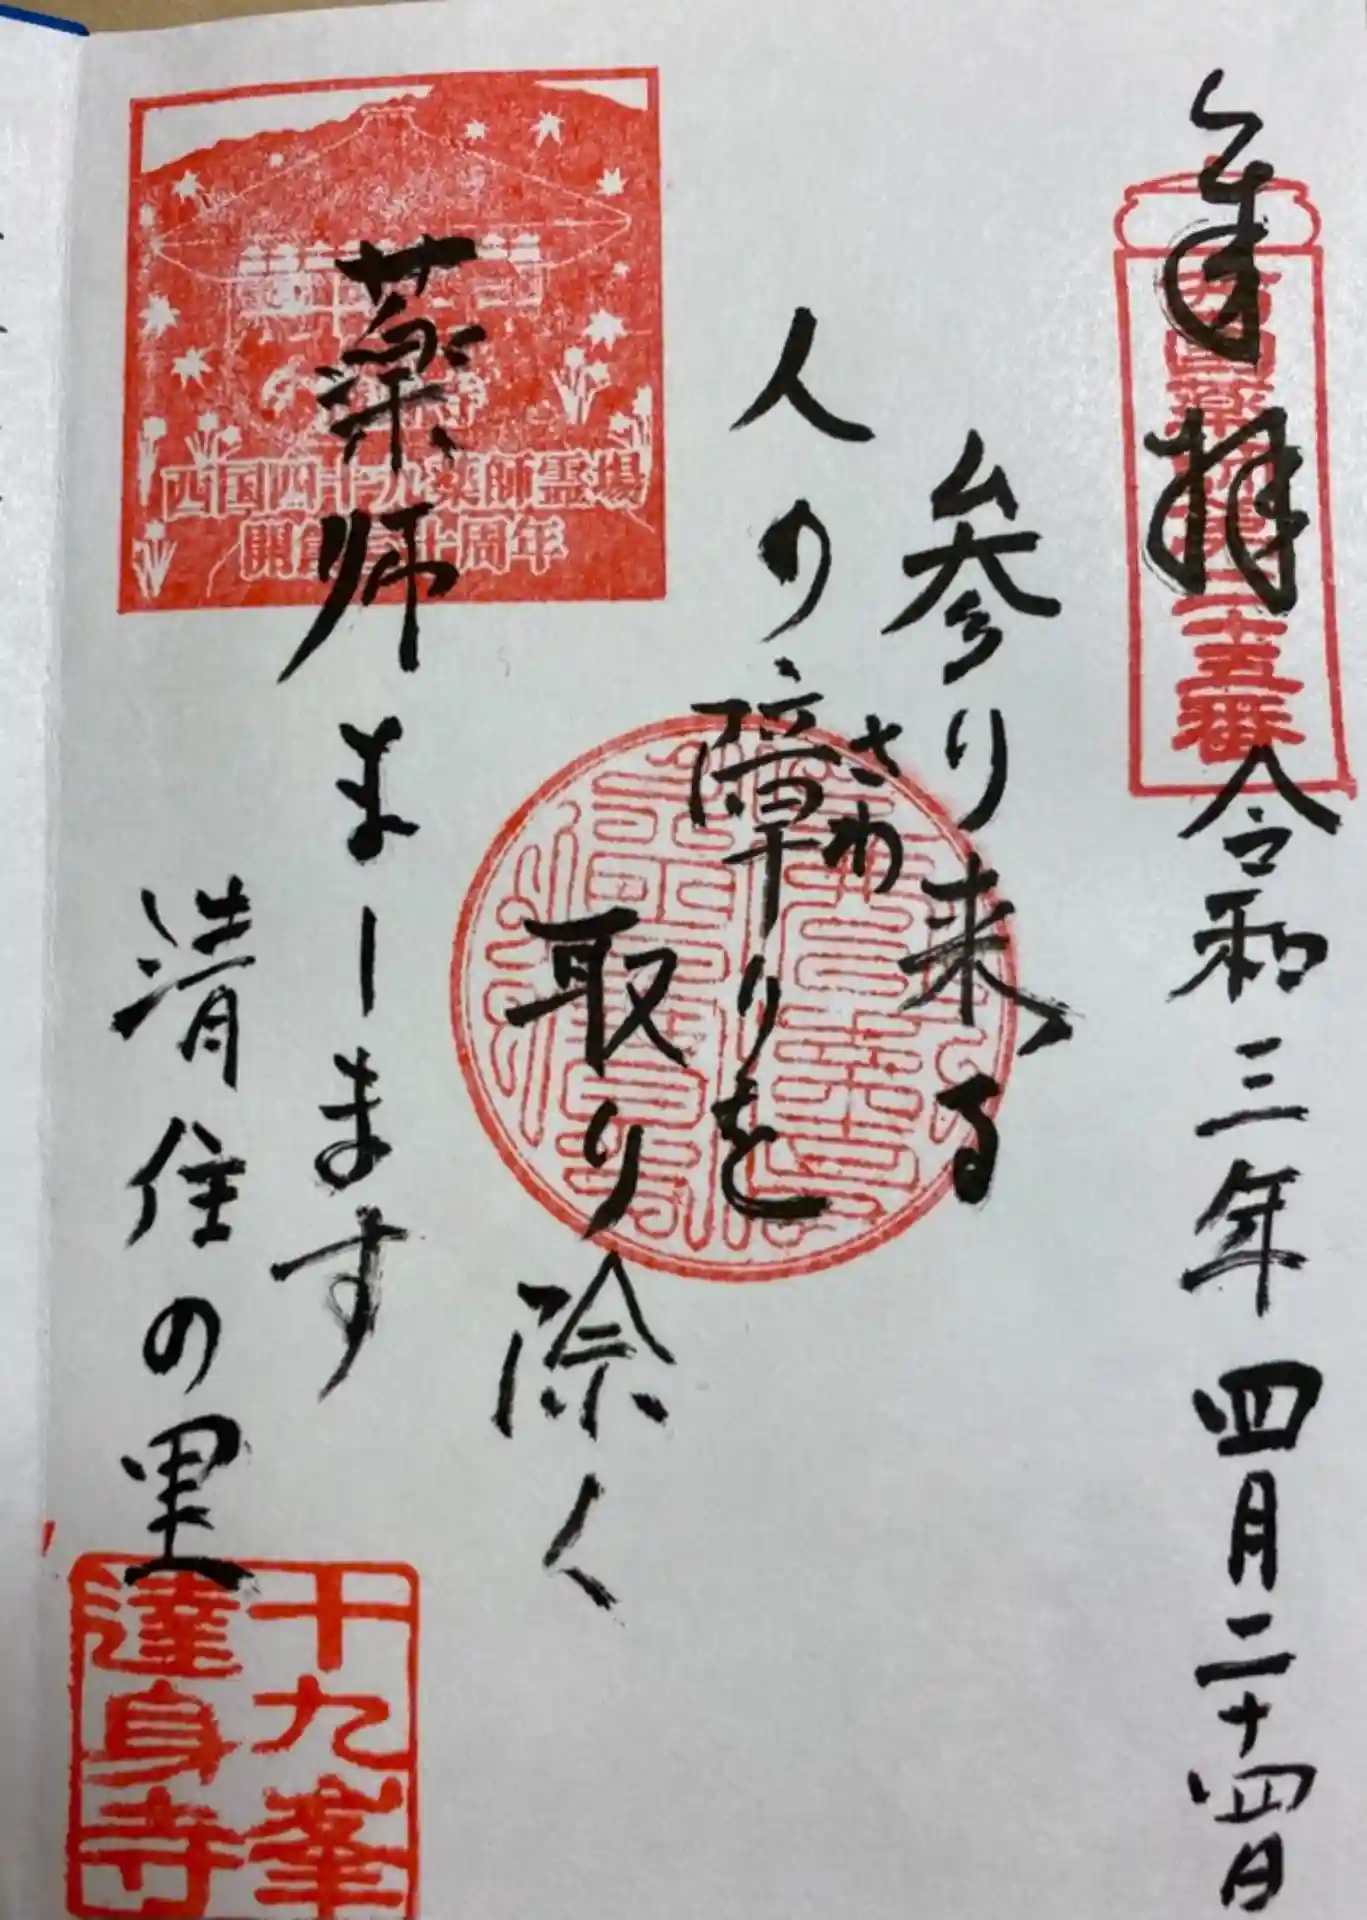 奉拝
令和三年四月二十四日
西国薬師第二十五番
参り来る
人の障りを
さわ
取り除く
薬師まします
清住の里
西国四十九薬師霊場
開創三十周年
十九峯
達身寺